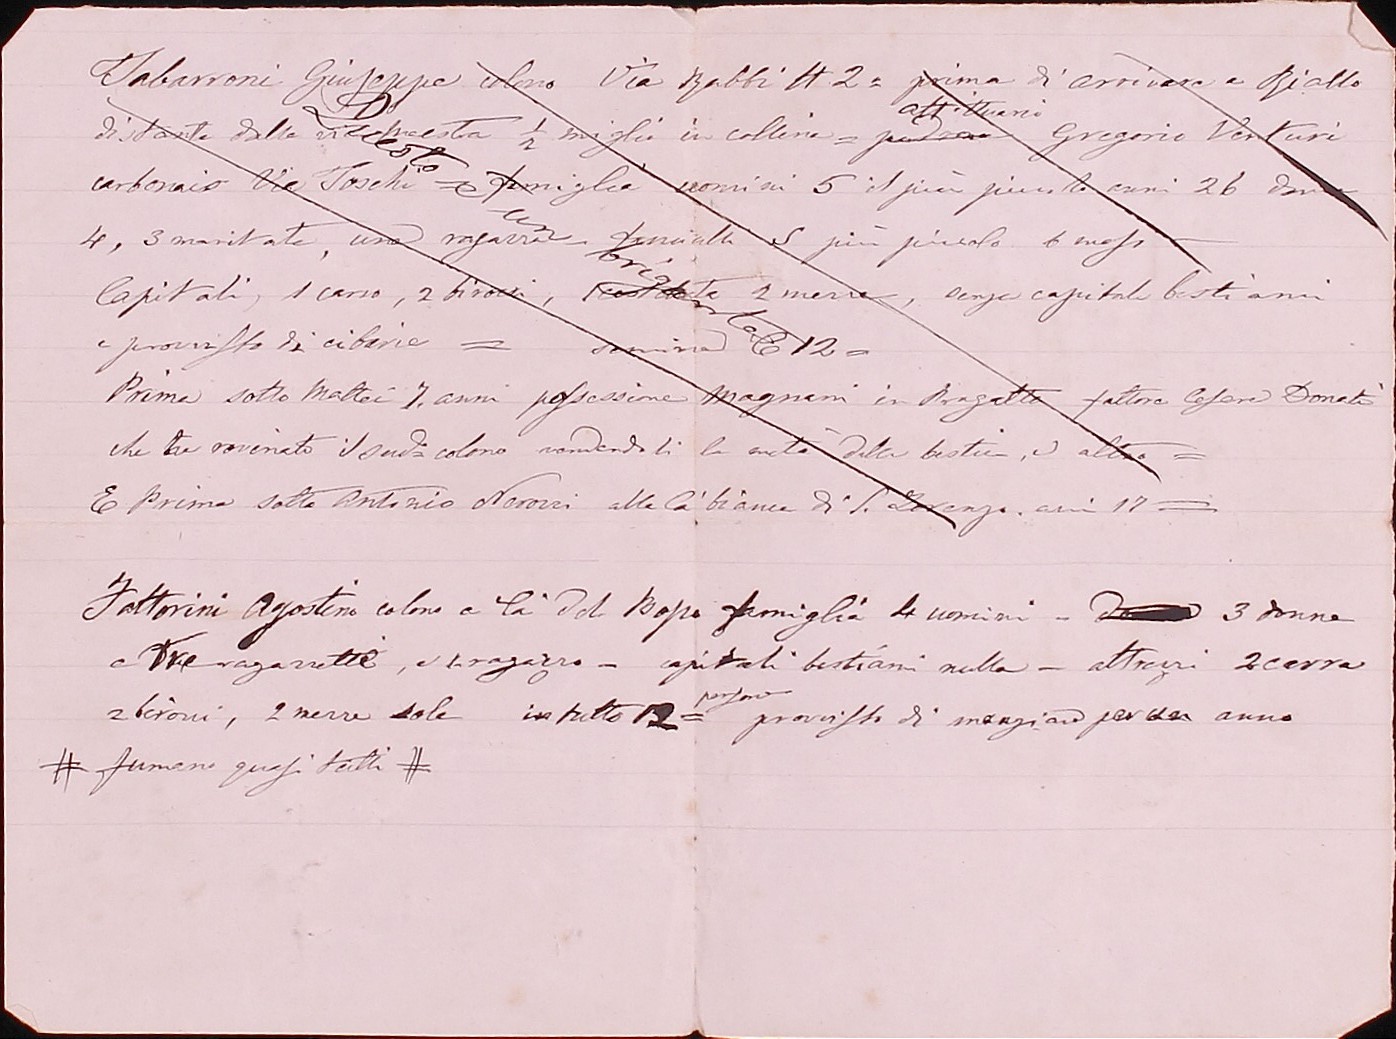 Tabarroni Giuseppe colono Via Babbi N 2 = prima di arrivare a Rialto
distante dalla via maesta ½ miglio in collina = padrone affittuario Gregorio Venturi
carbonaio Via Toschi = famiglia uomini 5 il più piccolo anni 26 donne
4, 3 maritate, una ragazza fanciulli 5 più piccolo 6 mesi
Capitali, 1 carro, 2 birocci, 2 merre, senza capitale bestiami
e provvisto di cibarie = semina C 12 =
Prima sotto Mattei 7. anni possessione Magnani in Bragatto fattore Cesare Donati
che ha rovinato il sudo colono vendendoli la metà delle bestie, e altro =
E Prima sotto Antonio Nerozzi alla Cà bianca di S. Lorenzo. anni 17 =
Do Casto un brigata
Fattorini Agostino colono a Cà del Bopo famiglia 4 uomini - 3 donne
e Tre ragazzette, e 2 ragazzo - capitali bestiami nulla - attrezzi 2 carra
2 birocci, 2 merre sole in tutto 12 = persone provvisto di mangiare per un anno
# fumano quasi tutti #